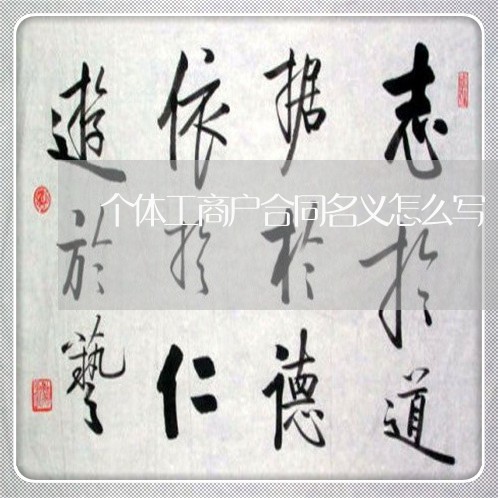 志於道
据於德
依於仁
遊於藝
个体工商户合同名义怎么写